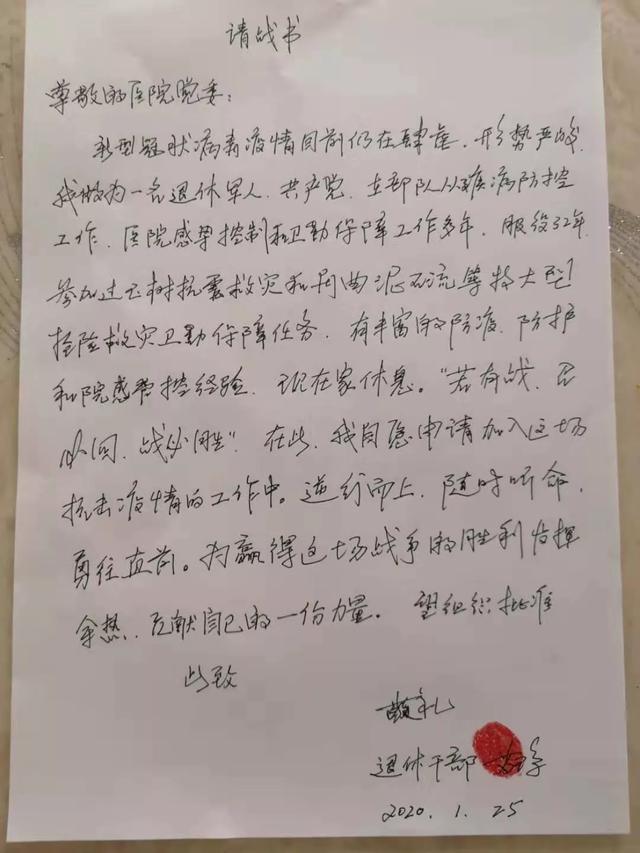 请战书
尊敬的医院党委：
新型冠状病毒疫情目前仍在肆虐，形势严峻，
我做为一名退休军人、共产党，在部队从事疾病防控
工作，医院感染控制和卫勤保障工作多年，服役32年，
参加过玉树抗震救灾和舟曲泥石流等特大型
抢险救灾卫勤保障任务，有丰富的防疫、防护
和院感管控经验，现在家休息。“若有战，召
必回，战必胜”，在此，我自愿申请加入这场
抗击疫情的工作中。逆行而上，随时听命，
勇往直前。为赢得这场战争的胜利发挥
余热、贡献自己的一份力量。望组织批准
此致
敬礼
退休干部
2020.1.25